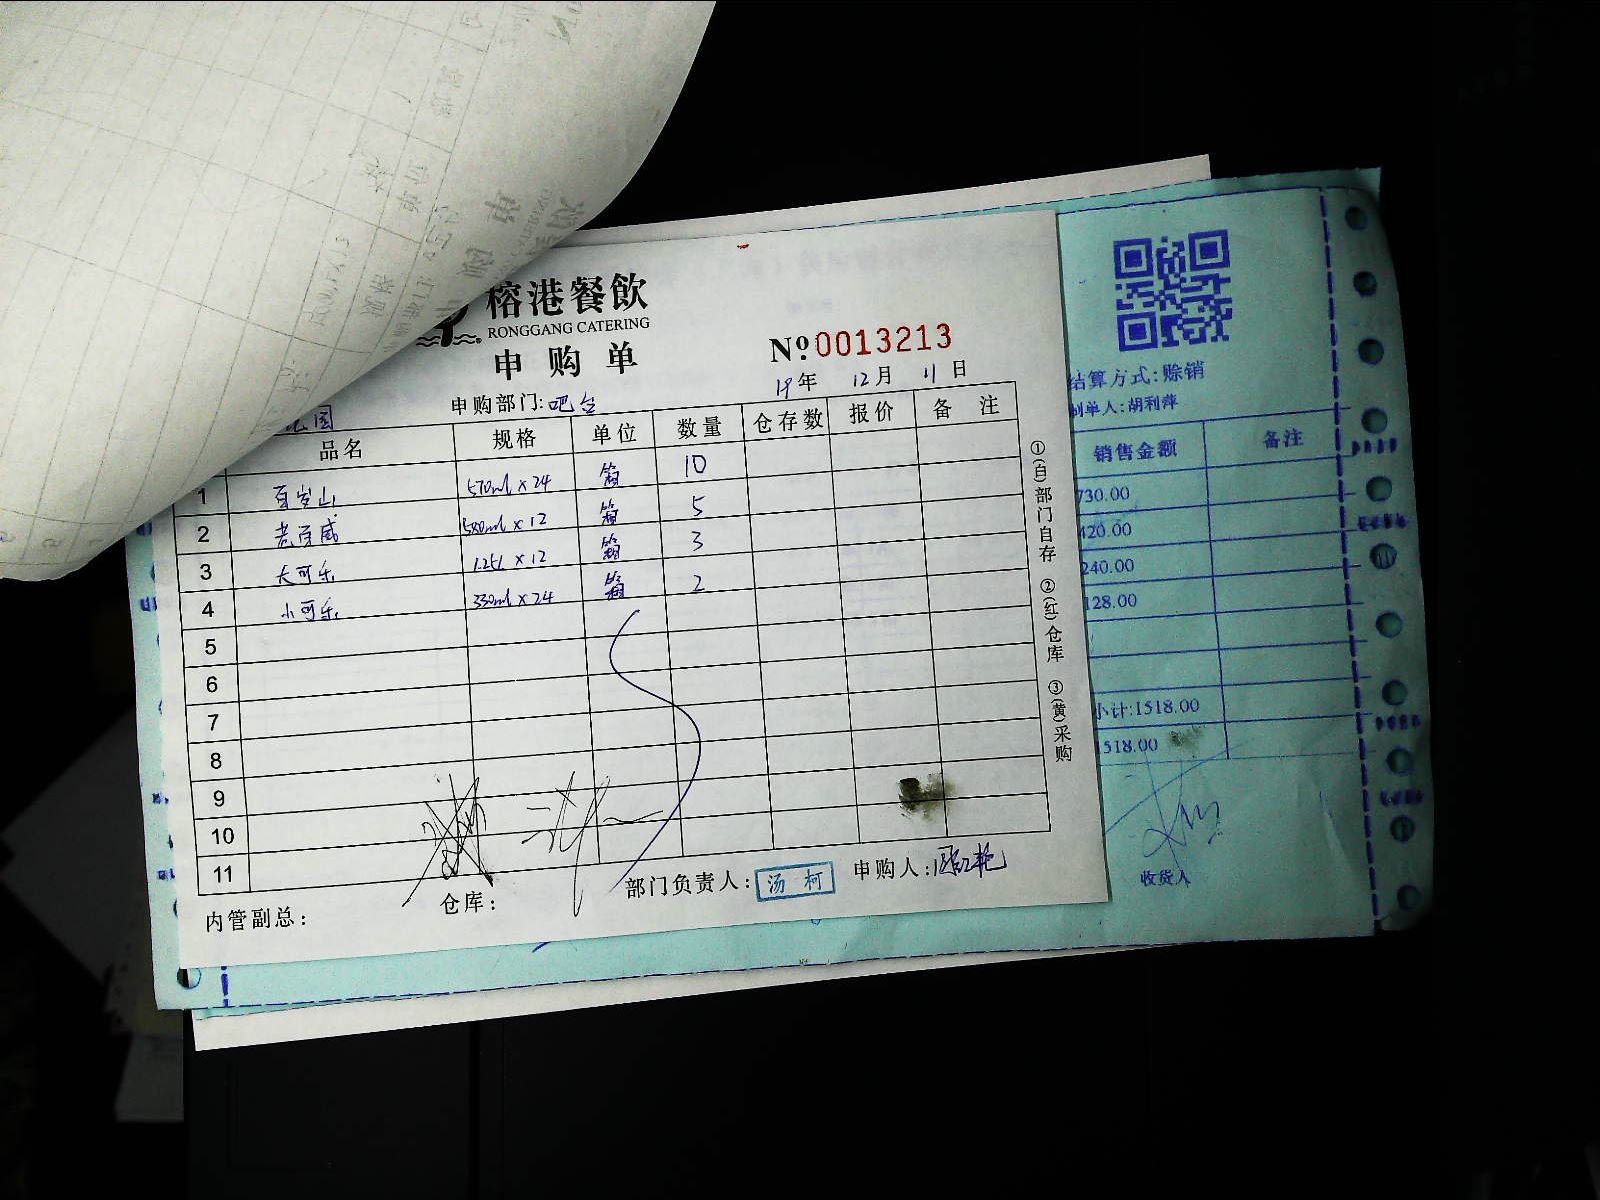 榕港餐飲
RONGGANG CATERING
申购单
№ 0013213
申购部门: 吧台
19年 12月 11日
品名 规格 单位 数量 仓存数 报价 备注
1 百岁山 570ml×24 箱 10
2 老百威 580ml×12 箱 5
3 大可乐 1.25L×12 箱 3
4 小可乐 330ml×24 箱 2
5
6
7
8
9
10
11
内管副总:
仓库:
部门负责人: 汤柯
申购人:
①(自)部门自存 ②(红)仓库 ③(黄)采购
结算方式:赊销
制单人:胡利萍
销售金额 备注
730.00
420.00
240.00
128.00
小计:1518.00
1518.00
收货人